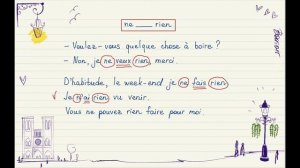 ne ___ rien
- Voulez-vous quelque chose à boire ?
- Non, je ne veux rien, merci.
D'habitude, le week-end je ne fais rien.
Je n'ai rien vu venir.
Vous ne pouvez rien faire pour moi.